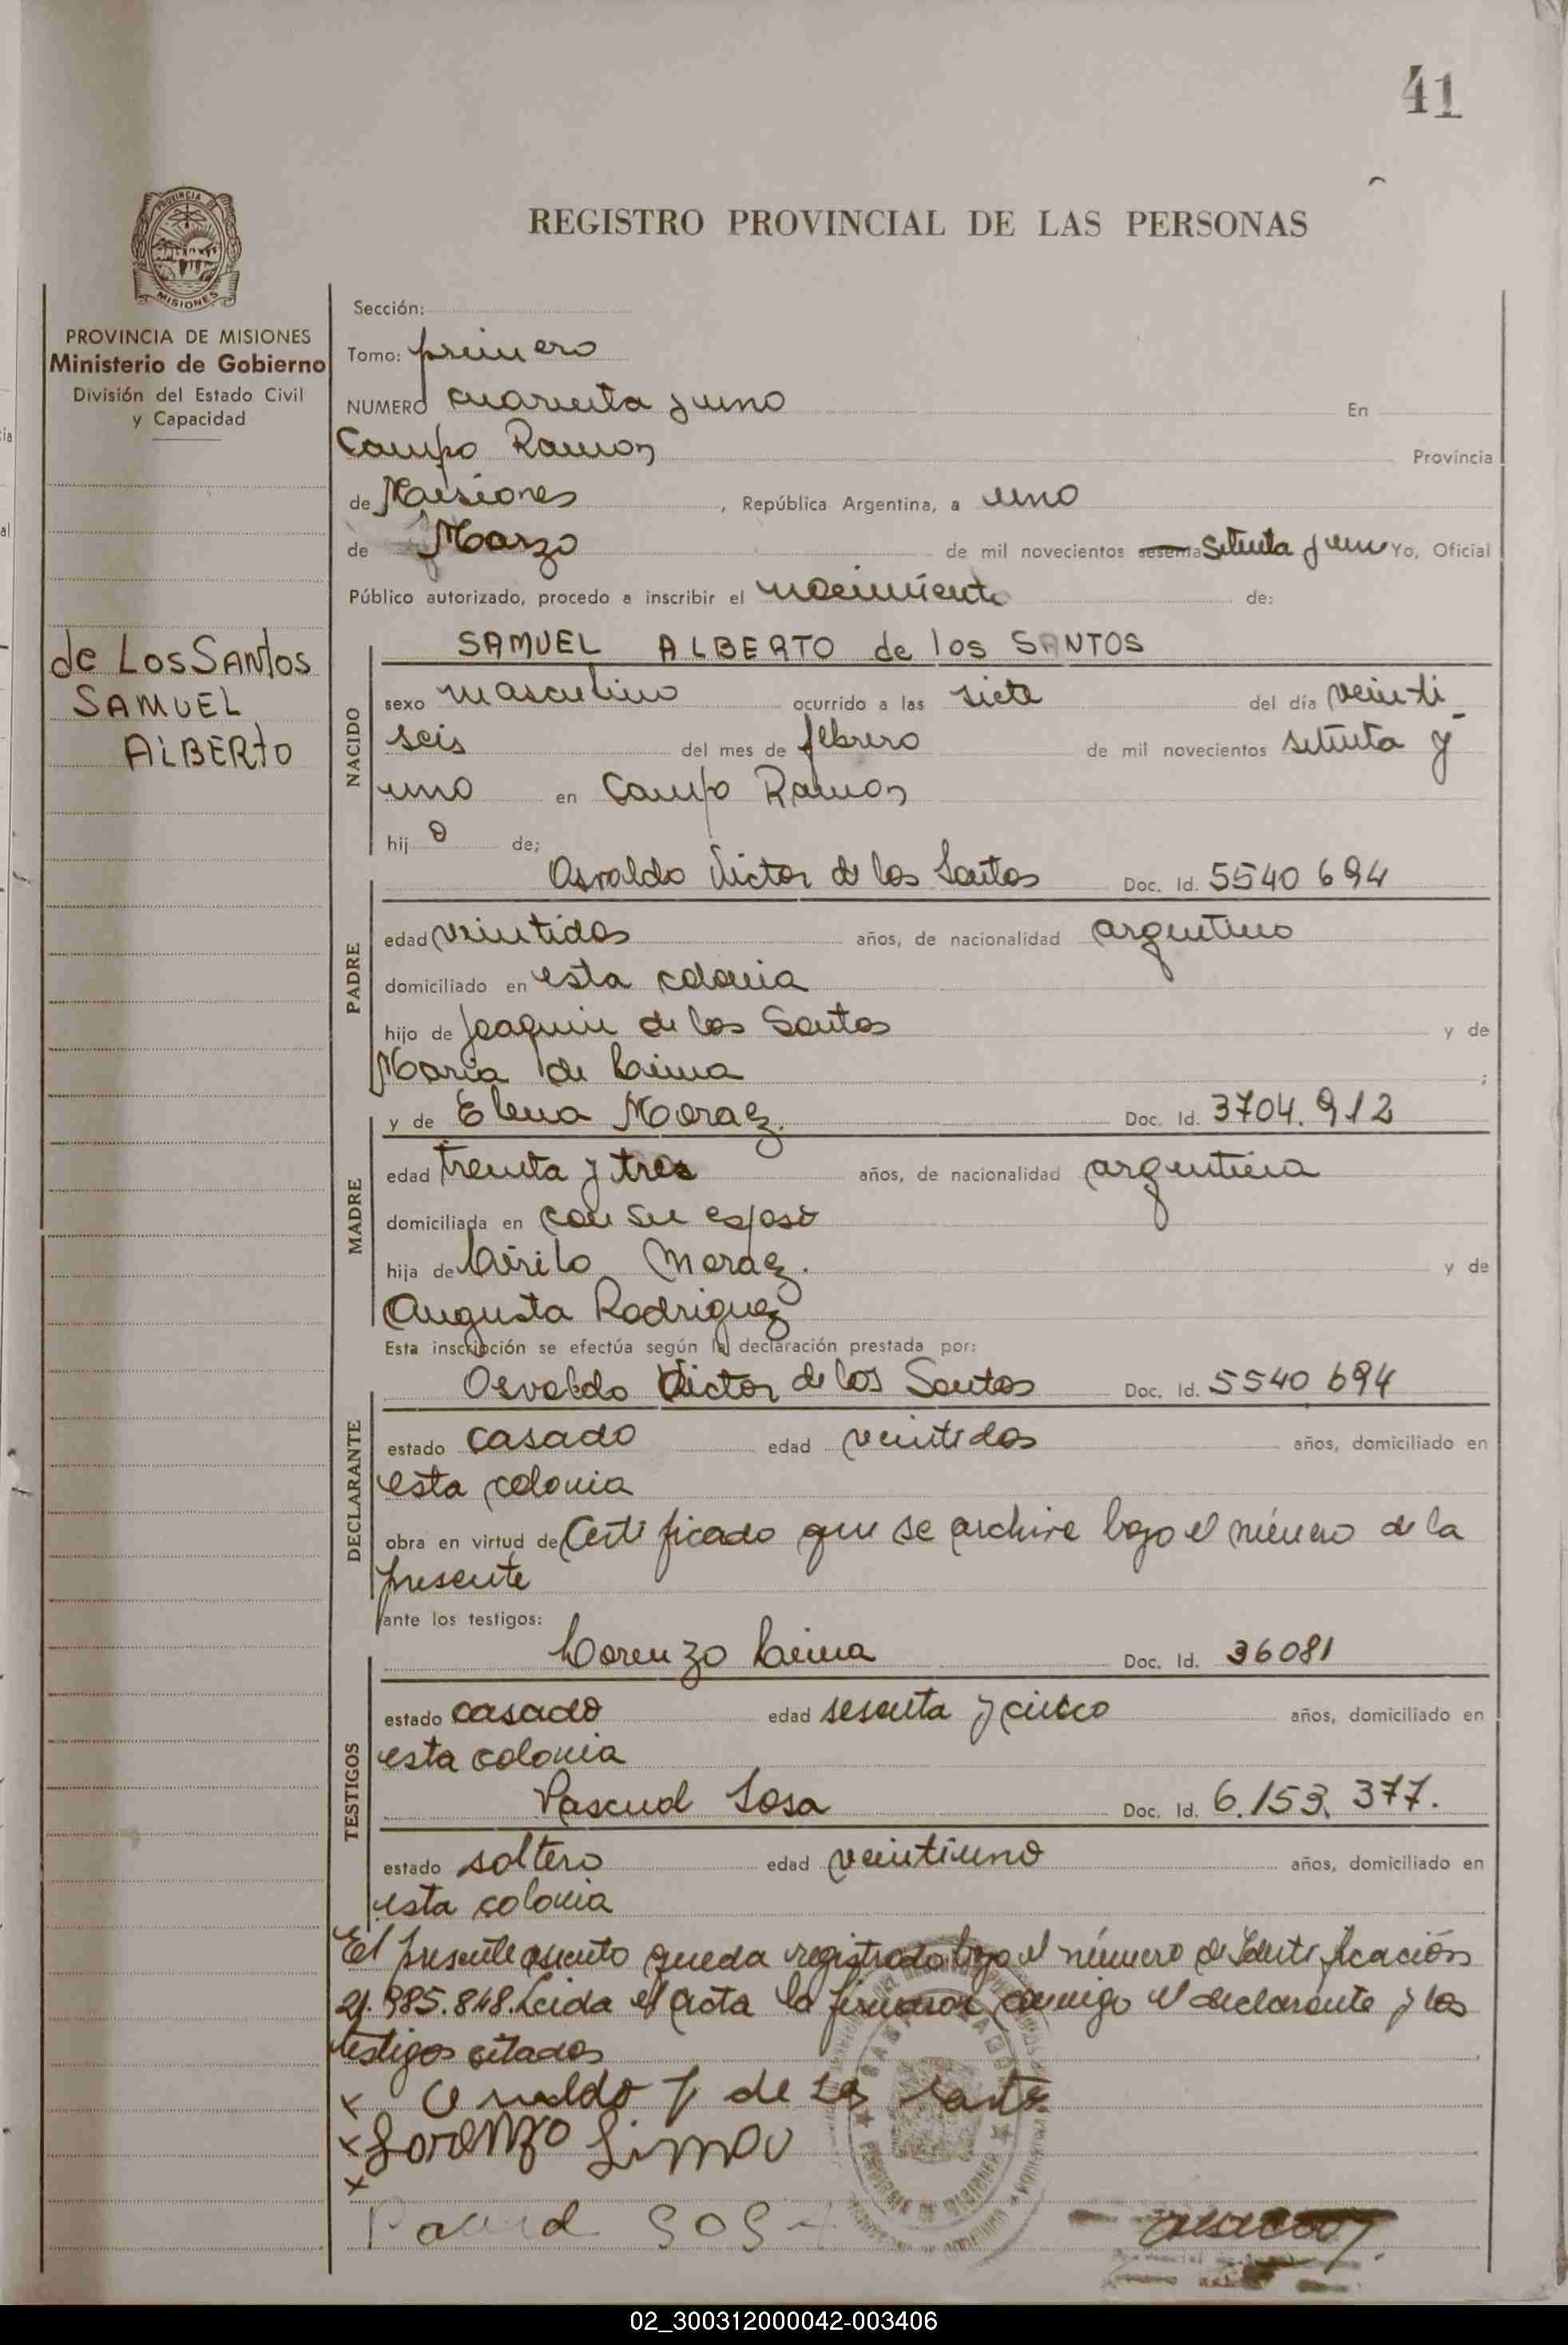 41
PROVINCIA DE MISIONES
REGISTRO PROVINCIAL DE LAS PERSONAS
PROVINCIA DE MISIONES
Ministerio de Gobierno
División del Estado Civil
y Capacidad
de Los SANtos
SAMUEL
ALBERto
Sección:
Tomo: primero
NUMERO cuarenta y uno En
Campo Ramon Provincia
de Misiones, República Argentina, a uno
de Marzo de mil novecientos sesenta setenta y uno Yo, Oficial
Público autorizado, procedo a inscribir el nacimiento de:
SAMUEL ALBERTO de los SANTOS
NACIDO
sexo masculino ocurrido a las siete del día veinti
seis del mes de febrero de mil novecientos setenta y
uno en Campo Ramon
hijo de;
PADRE
Osvaldo Victor de los Santos Doc. Id. 5540 694
edad veintidos años, de nacionalidad argentino
domiciliado en esta colonia
hijo de Joaquin de los Santos y de
Maria de Lima ;
MADRE
y de Elena Moraez. Doc. Id. 3704.912
edad treinta y tres años, de nacionalidad argentina
domiciliada en con su esposo
hija de Cirilo Moraez. y de
Augusta Rodriguez
Esta inscripción se efectúa según la declaración prestada por:
DECLARANTE
Osvaldo Victor de los Santos Doc. Id. 5540 694
estado casado edad veintidos años, domiciliado en
esta colonia
obra en virtud de Certificado que se archive bajo el número de la
presente
ante los testigos:
TESTIGOS
Lorenzo Lima Doc. Id. 36081
estado casado edad sesenta y cinco años, domiciliado en
esta colonia
Pascual Sosa Doc. Id. 6.153.377.
estado soltero edad veintiuno años, domiciliado en
esta colonia
El presente asiento queda registrado bajo el número de Identificación
21.985.848. Leida el acta la firman conmigo el declarante y los
testigos citados
x Osvaldo V de los Santos
x Lorenzo Lima
x
Pascual SOSA
02_300312000042-003406